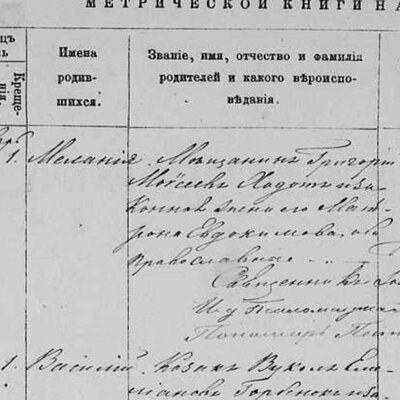 МЕТРИЧЕСКОЙ КНИГИ НА
Имена родив-шихся.
Званіе, имя, отчество и фамилія
родителей и какого вѣроиспо-
вѣданія.
Креще-
нія.
1. Меланія. Мѣщанинъ Григорій
Моѵсеевъ Ходотъ и за-
конная жена его Мат-
рона Евдокимова, оба
православные
Священникъ
И. д. Псаломщика
Пономарь
1. Василій. Козакъ Вуколъ Еме-
ліановъ Горбенокъ и за-